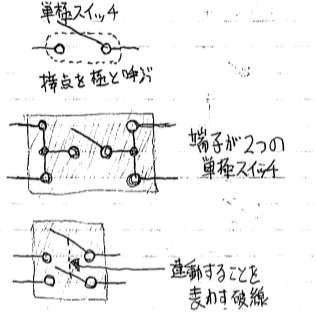 単極スイッチ
接点を極と呼ぶ
端子が2つの
単極スイッチ
連動することを
表わす破線